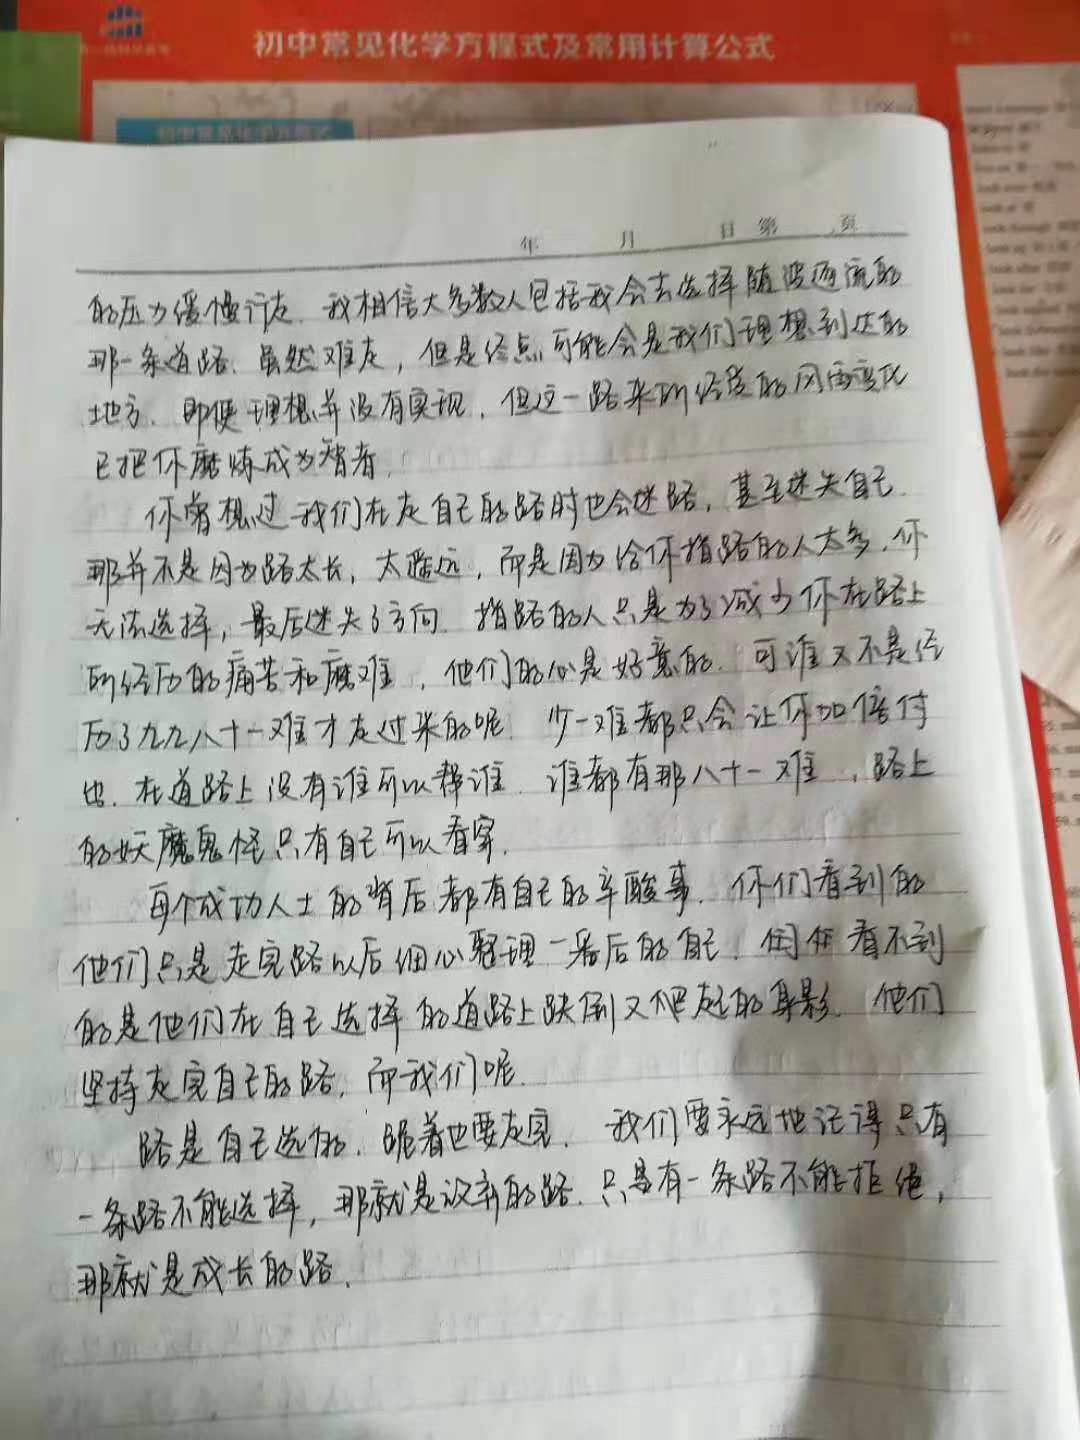 初中常见化学方程式及常用计算公式
初中常见化学方程式
年 月 日 第 页
的压力缓慢行走. 我相信大多数人包括我会去选择随波逐流的
那一条道路. 虽然难走, 但是终点可能会是我们理想到达的
地方. 即便理想并没有实现. 但这一路来所经受的风雨变化
已把你磨炼成为智者.
你曾想过我们在走自己的路时也会迷路, 甚至迷失自己.
那并不是因为路太长, 太遥远, 而是因为给你指路的人太多. 你
无法选择, 最后迷失了方向. 指路的人只是为了减少你在路上
所经历的痛苦和磨难, 他们的心是好意的. 可谁又不是经
历了九九八十一难才走过来的呢. 少一难都只会让你加倍付
出. 在道路上没有谁可以帮谁. 谁都有那八十一难, 路上
的妖魔鬼怪只有自己可以看穿.
每个成功人士的背后都有自己的辛酸事. 你们看到的
他们只是走完路以后细心整理一番后的自己. 往往看不到
的是他们在自己选择的道路上跌倒又爬起的身影. 他们
坚持走完自己的路, 而我们呢.
路是自己选的. 跪着也要走完. 我们要永远地记得只有
一条路不能选择, 那就是放弃的路. 只有一条路不能拒绝,
那就是成长的路.